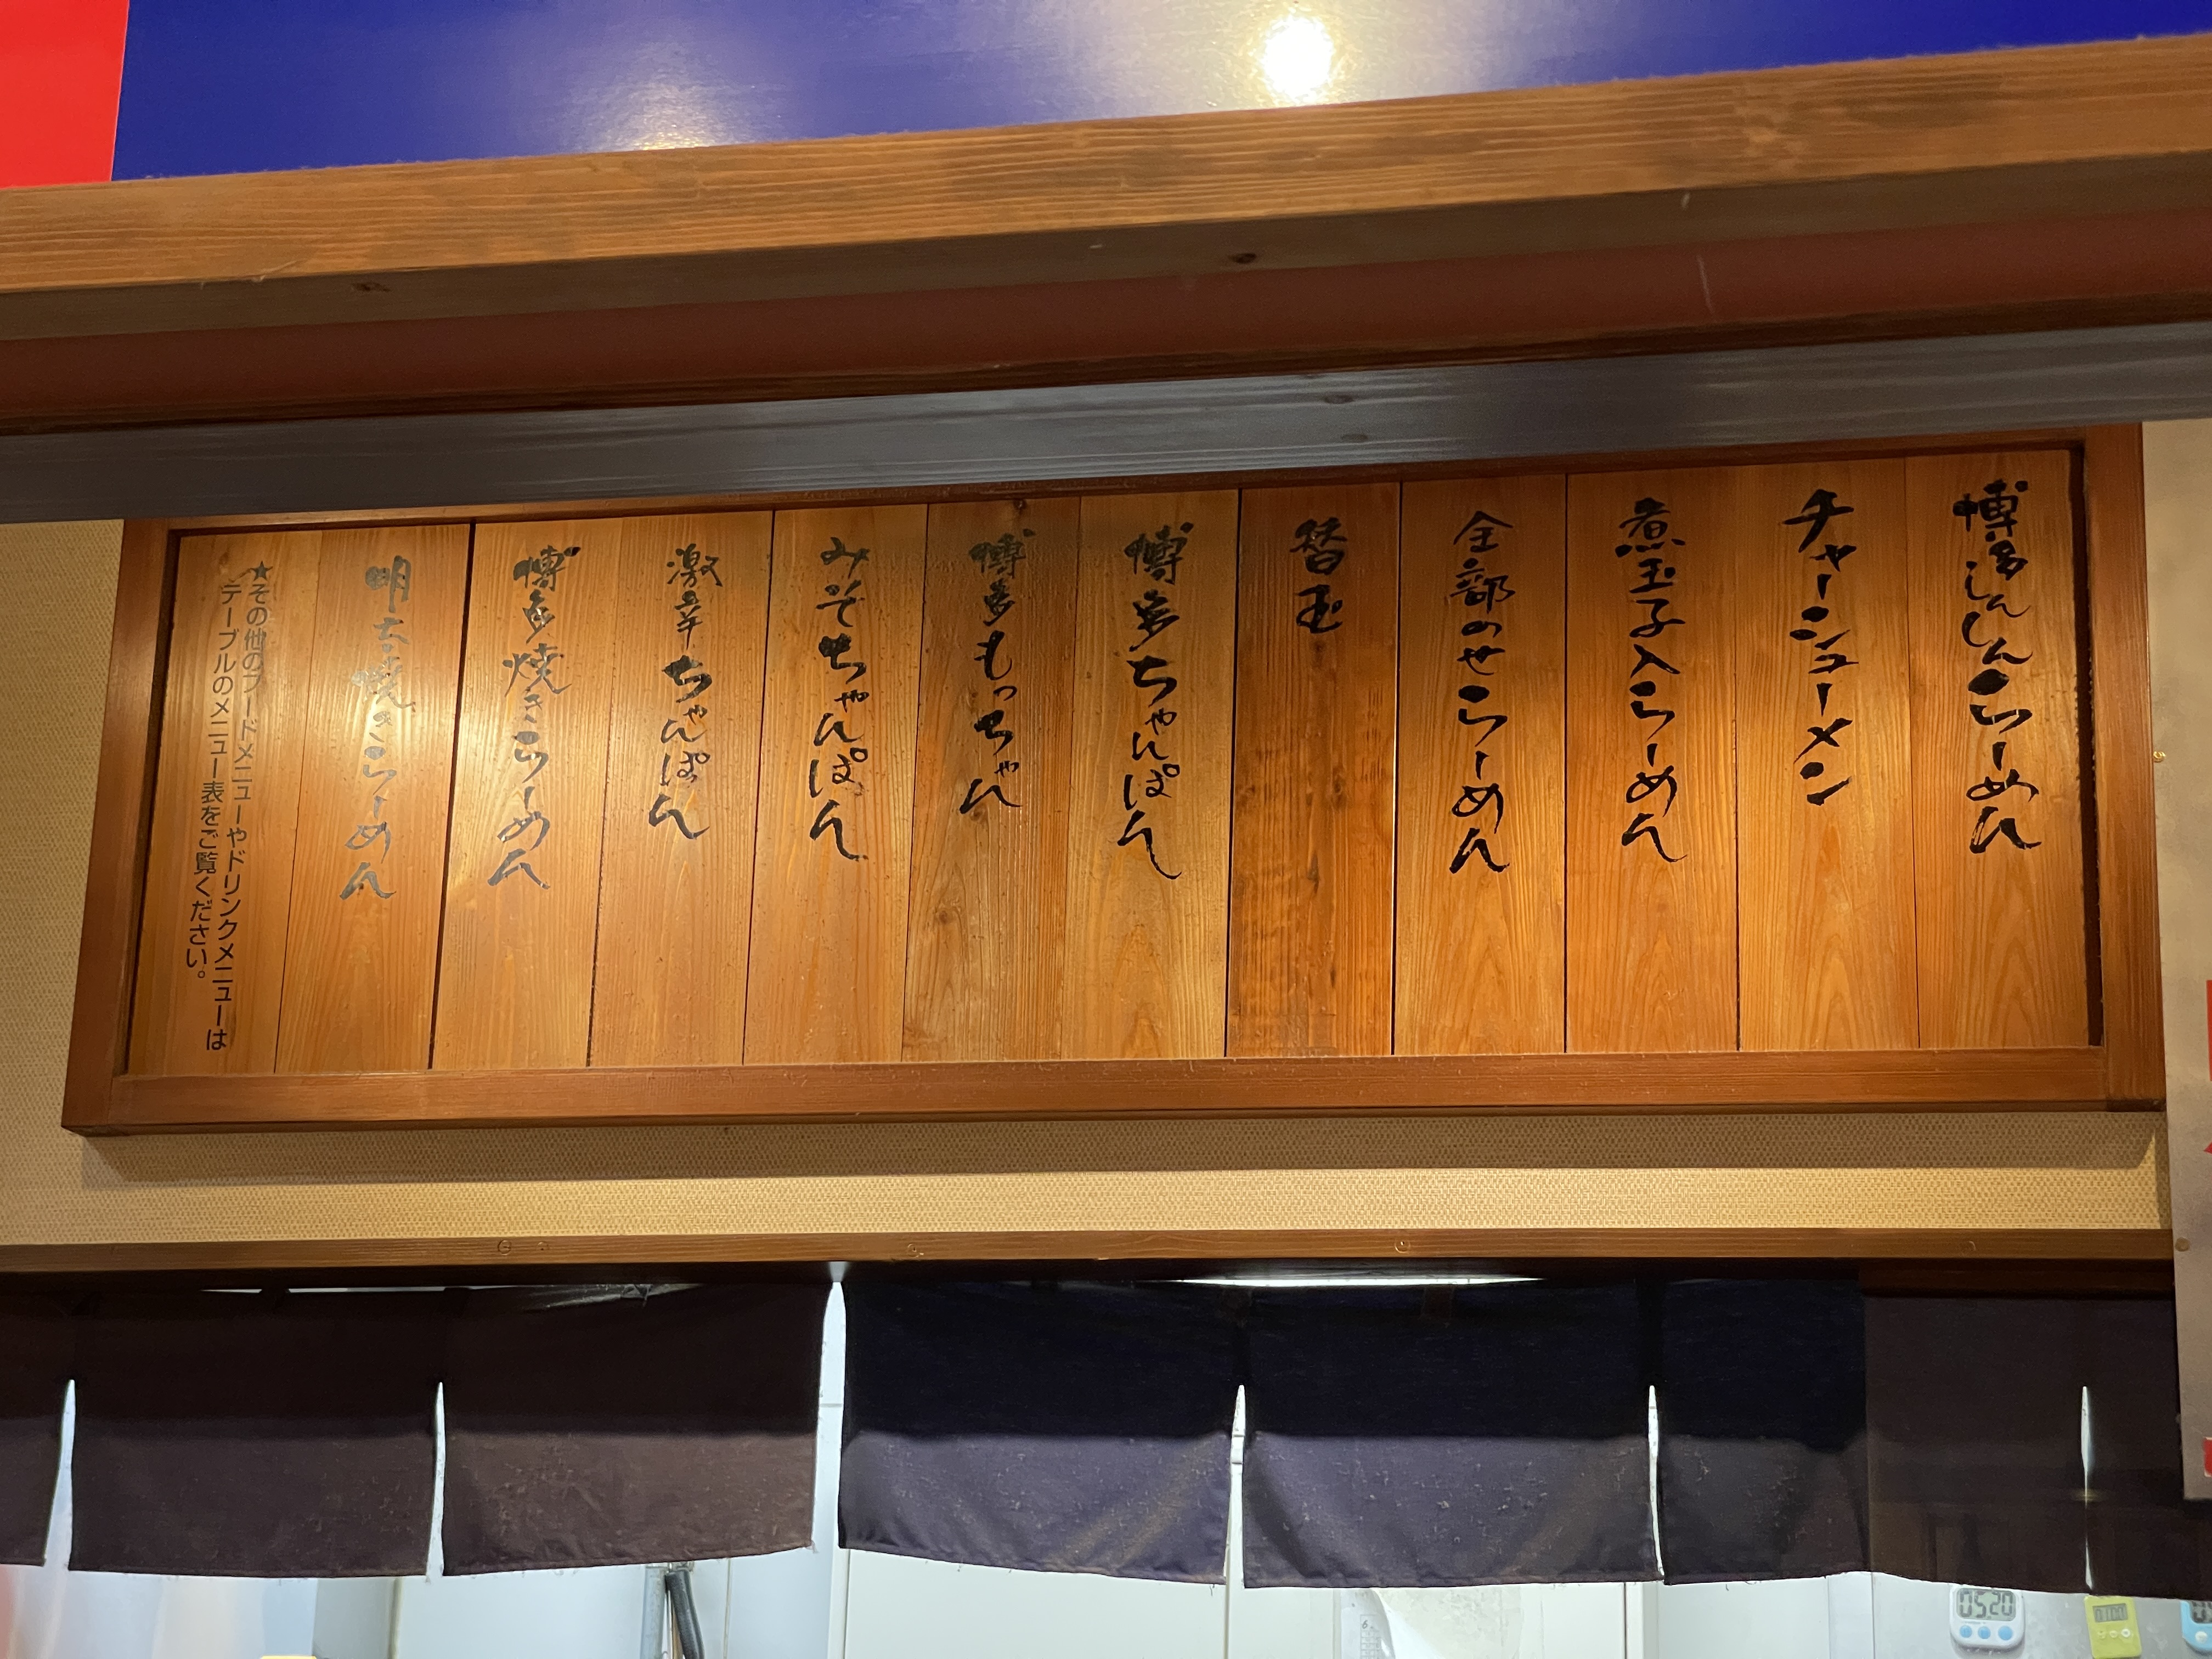 博多しんしんらーめん
チャーシューメン
煮玉子入らーめん
全部のせらーめん
替玉
博多ちゃんぽん
博多もっちゃん
みそちゃんぽん
激辛ちゃんぽん
博多焼きらーめん
明太焼きらーめん
★その他のフードメニューやドリンクメニューは
テーブルのメニュー表をご覧ください。
0520